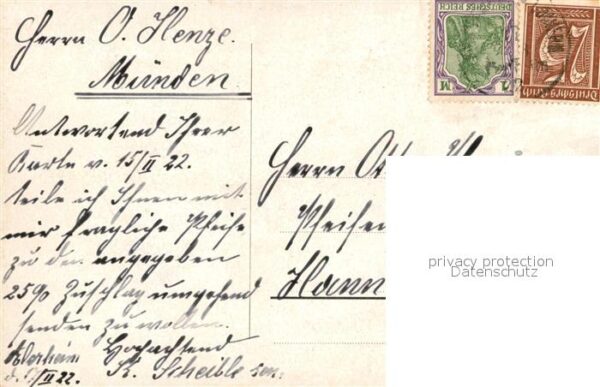 Herrn O. Henze.
Münden.
Antwortend Ihrer
Karte v. 15/II 22.
teile ich Ihnen mit
mir fragliche Pfeife
zu den angegeben
25% Zuschlag umgehend
senden zu wollen.
Hochachtend
K. Scheible sen.
/II 22.
DEUTSCHES REICH
M
2
Deutsches Reich
75
Herrn
Pfeifen
Hann
privacy protection
Datenschutz